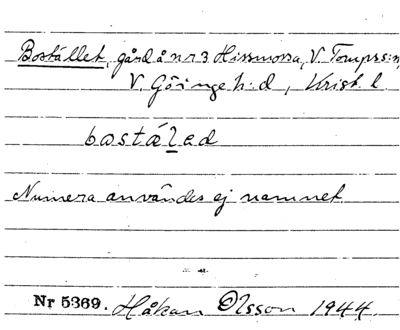 Bostället, gård å nr 3 Hissmossa, V. Torups s:n
V. Göinge h:d, Krist. l.
bostáled
Numera användes ej namnet
Nr 5369. Håkan Olsson 1944.